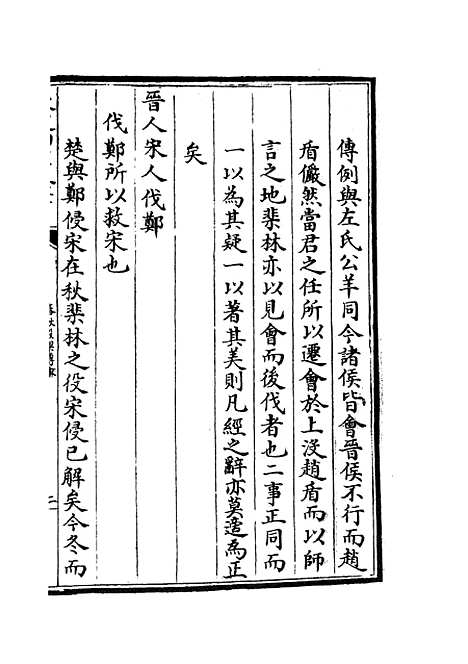 傳例與左氏公羊同今諸侯皆會晉侯不行而趙
盾儼然當君之任所以遷會於上沒趙盾而以師
言之地棐林亦以見會而後伐者也二事正同而
一以為其疑一以著其美則凡經之辭亦莫適為正
矣
晉人宋人伐鄭
伐鄭所以救宋也
楚與鄭侵宋在秋棐林之役宋侵已解矣今冬而